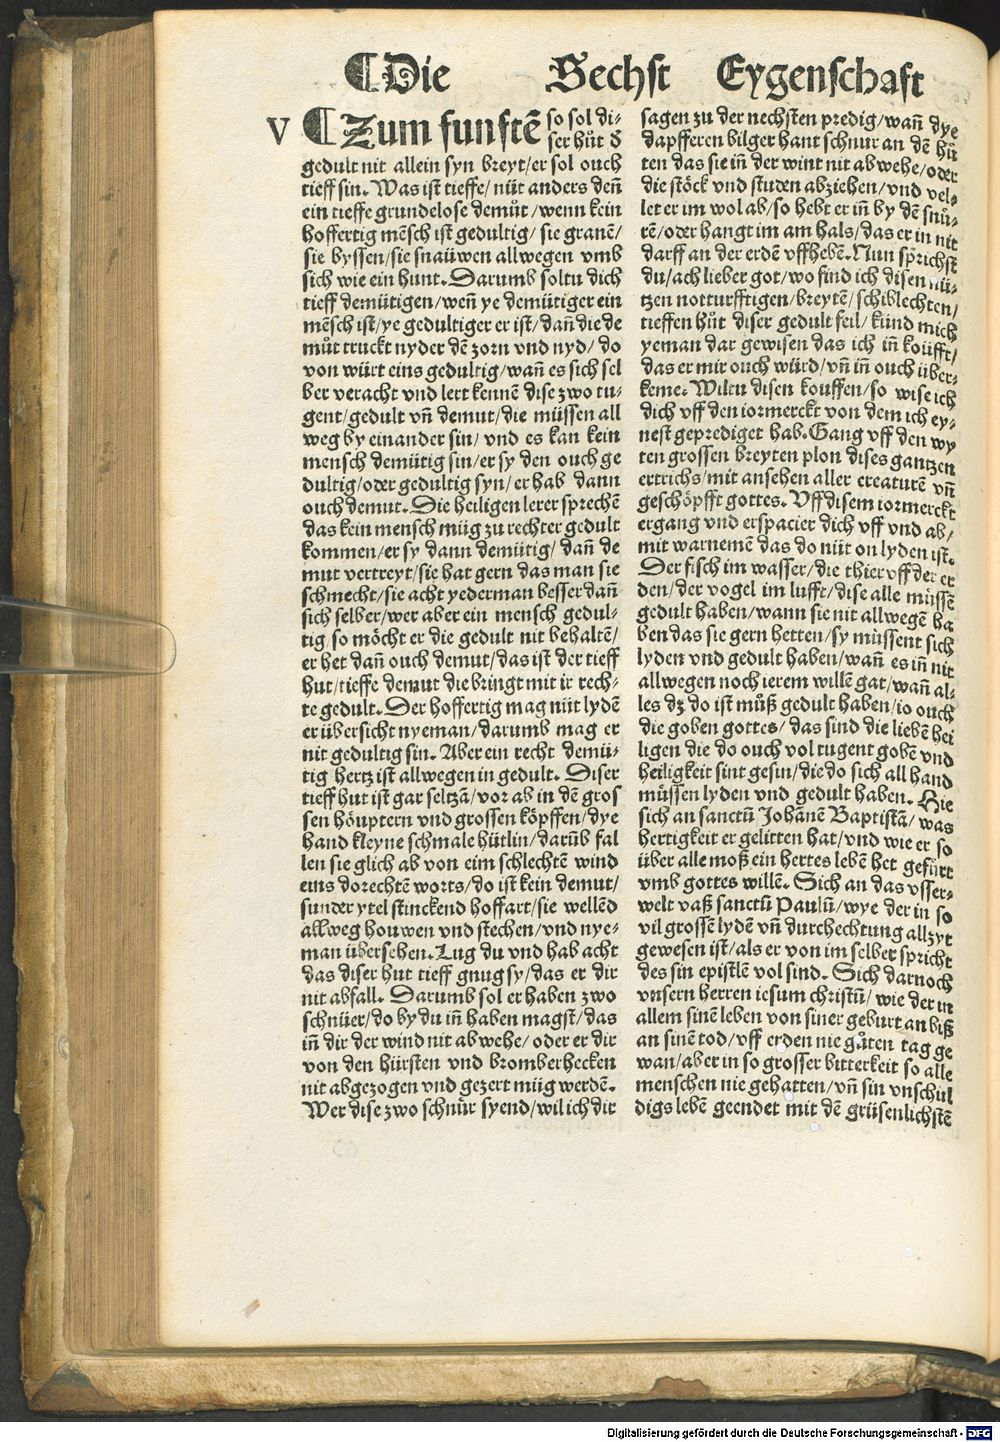 ¶Die Sechst Eygenschaft
V ¶Zum funftē so sol di-
ser hůt d̕
gedult nit allein syn breyt/er sol ouch
tieff sin. Was ist tieffe/nüt anders deñ
ein tieffe grundelose demůt/wenn kein
hoffertig mēsch ist gedultig/sie granē/
sie byssen/sie snaüwen allwegen vmb
sich wie ein hunt. Darumb soltu dich
tieff demütigen/weñ ye demütiger ein
mēsch ist/ye gedultiger er ist/dañ die de
můt truckt nyder dē zorn vnd nyd/do
von würt eins gedultig/wañ es sich sel
ber veracht vnd lert kennē dise zwo tu-
gent/gedult vñ demut/die müssen all
weg by einander sin/vnd es kan kein
mensch demütig sin/er sy den ouch ge
dultig/oder gedultig syn/er hab dann
ouch demut. Die heiligen lerer sprechē
das kein mensch müg zu rechter gedult
kommen/er sy dann demütig/dañ de
mut vertreyt/sie hat gern das man sie
schmecht/sie acht yederman besser dañ
sich selber/wer aber ein mensch gedul-
tig so möcht er die gedult nit behaltē/
er het dañ ouch demut/das ist der tieff
hut/tieffe demut die bringt mit ir rech-
te gedult. Der hoffertig mag nüt lydē
er übersicht nyeman/darumb mag er
nit gedultig sin. Aber ein recht demü-
tig hertz ist allwegen in gedult. Diser
tieff hut ist gar seltzā/vor ab in dē gros
sen höuptern vnd grossen köpffen/dye
hand kleyne schmale hütlin/darūb fal
len sie glich ab von eim schlechtē wind
eins dorechtē worts/do ist kein demut/
sunder ytel stinckend hoffart/sie wellēd
allweg houwen vnd stechen/vnd nye-
man übersehen. Lug du vnd hab acht
das diser hut tieff gnug sy/das er dir
nit abfall. Darumb sol er haben zwo
schnüer/do by du iñ haben magst/das
iñ dir der wind nit abwehe/oder er dir
von den hürsten vnd bromberhecken
nit abgezogen vnd gezert müg werdē.
Wer dise zwo schnür syend/wil ich dir
sagen zu der nechsten predig/wañ dye
dapfferen bilger hant schnur an dē hü
ten das sie iñ der wint nit abwehe/oder
die stöck vnd studen abziehen/vnd vel-
let er im wol ab/so hebt er iñ by dē snü-
rē/oder hangt im am hals/das er in nit
darff an der erdē vffhebē. Nun sprichst
du/ach lieber got/wo find ich disen nü-
tzen notturfftigen/breytē/schiblechten/
tieffen hůt diser gedult feil/künd mich
yeman dar gewisen das ich iñ koüfft/
das er mir ouch würd/vñ iñ ouch über-
keme. Wiltu disen kouffen/so wise ich
dich vff den iormerckt von dem ich ey-
nest geprediget hab. Gang vff den wy
ten grossen breyten plon dises gantzen
ertrichs/mit ansehen aller creaturē vñ
geschöpfft gottes. Vff disem iormerckt
ergang vnd erspacier dich vff vnd ab/
mit warnemē das do nüt on lyden ist.
Der fisch im wasser/die thier vff der er
den/der vogel im lufft/dise alle müssē
gedult haben/wann sie nit allwegen ha
ben das sie gern hetten/sy müssent sich
lyden vnd gedult haben/wañ es iñ nit
allwegen noch ierem willē gat/wañ al-
les dz do ist můß gedult haben/io ouch
die goben gottes/das sind die liebē hei
ligen die do ouch vol tugent gobē vnd
heiligkeit sint gesin/die do sich all hand
müssen lyden vnd gedult haben. Hie
sich an sanctū Johānē Baptistā/was
hertigkeit er gelitten hat/vnd wie er so
über alle moß ein hertes lebē het gefürt
vmb gottes willē. Sich an das vsser-
welt vaß sanctū Paulū/wye der in so
vil grossē lydē vñ durchechtung allzyt
gewesen ist/als er von im selber spricht
des sin epistlē vol sind. Sich darnoch
vnsern herren iesum christū/wie der in
allem sinē leben von siner geburt an biß
an sinē tod/vff erden nie gůten tag ge
wan/aber in so grosser bitterkeit so alle
menschen nie gehatten/vñ sin vnschul
digs lebē geendet mit dē grüsenlichstē
Digitalisierung gefördert durch die Deutsche Forschungsgemeinschaft - DFG